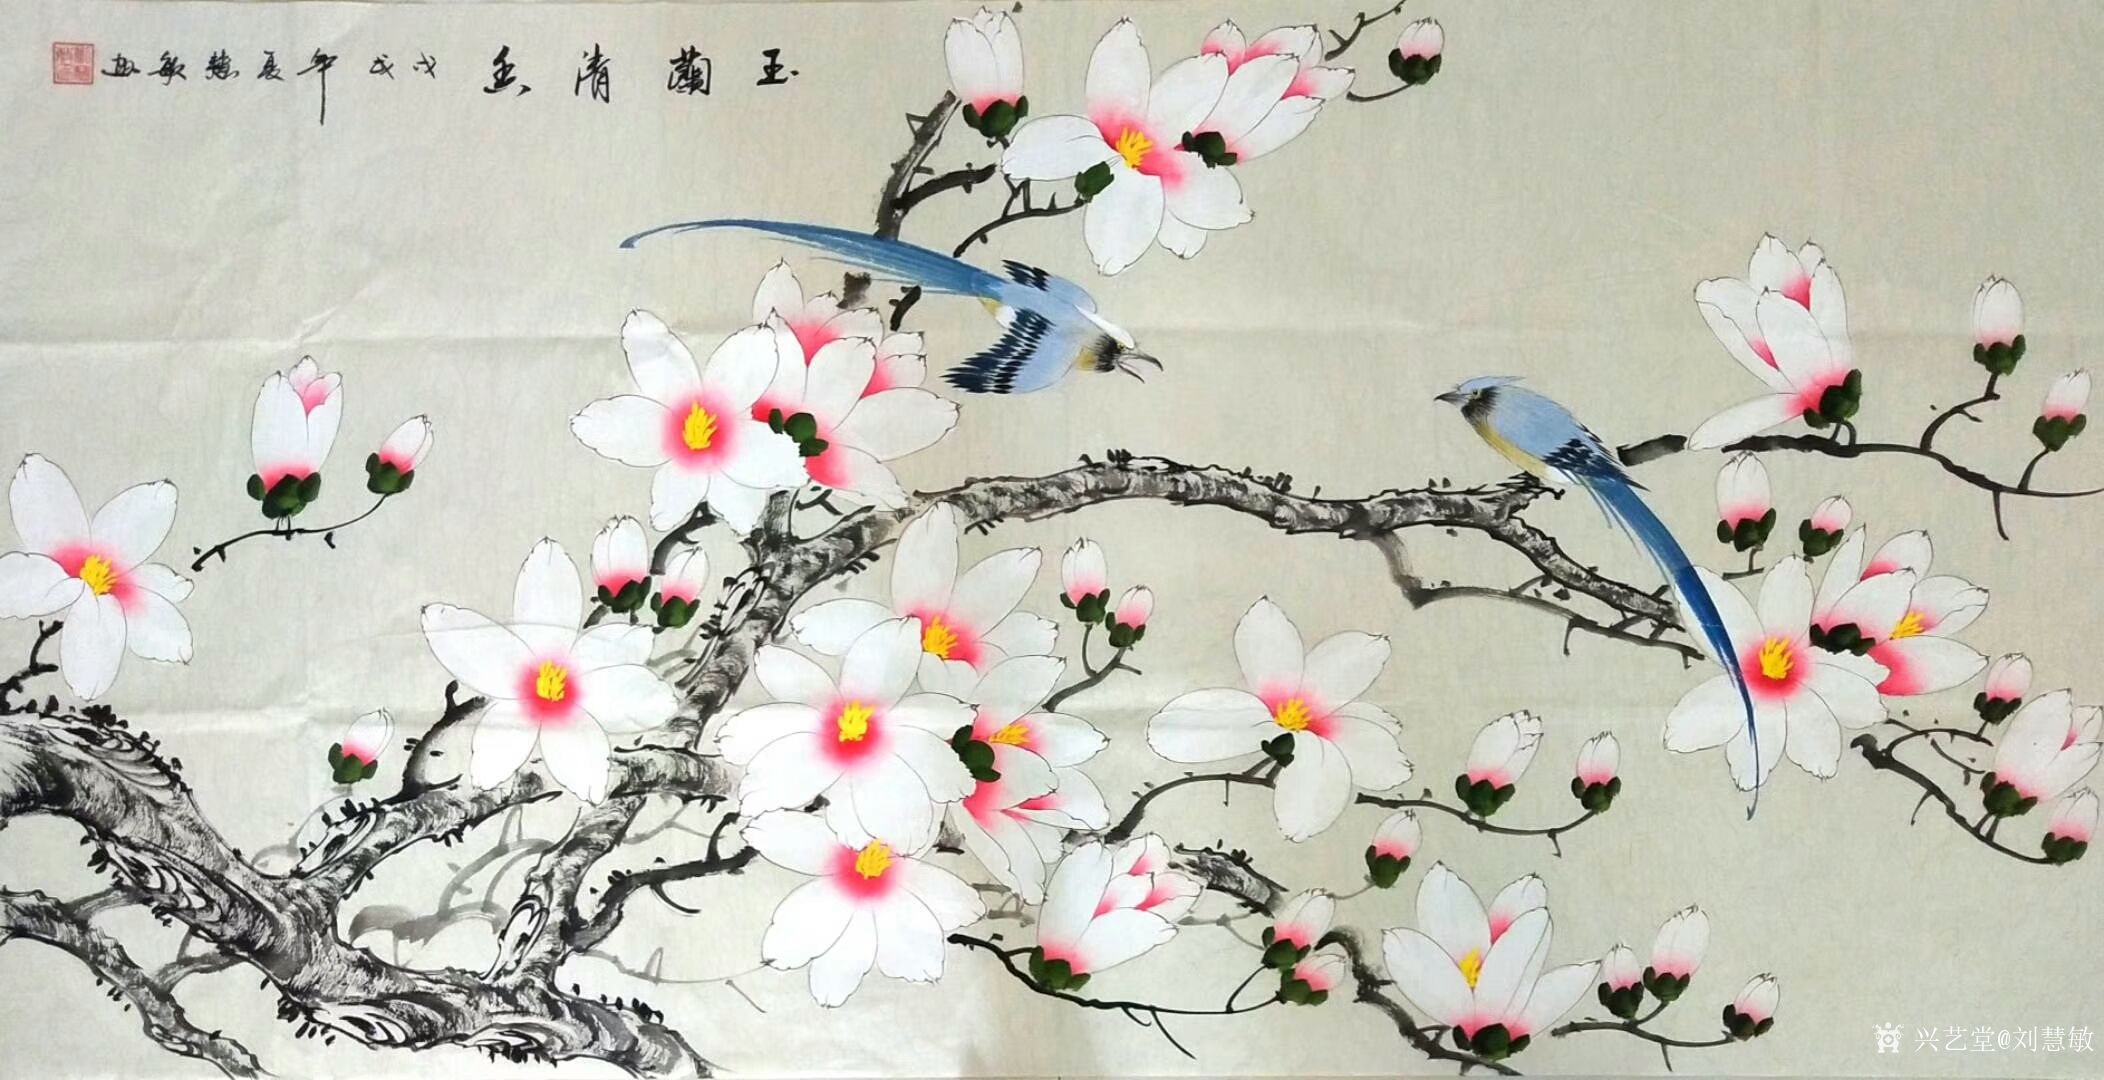 玉蘭清香
戊戌年夏慧敏畫
兴艺堂@刘慧敏